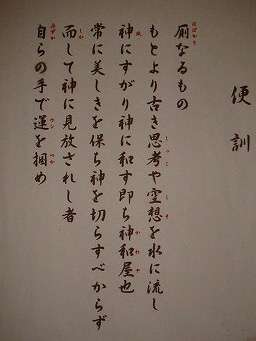 便訓
厠なるもの
もとより古き思考や空想を水に流し
神にすがり神に和す即ち神和屋也
常に美しきを保ち神を切らすべからず
而して神に見放されし者
自らの手で運を掴め